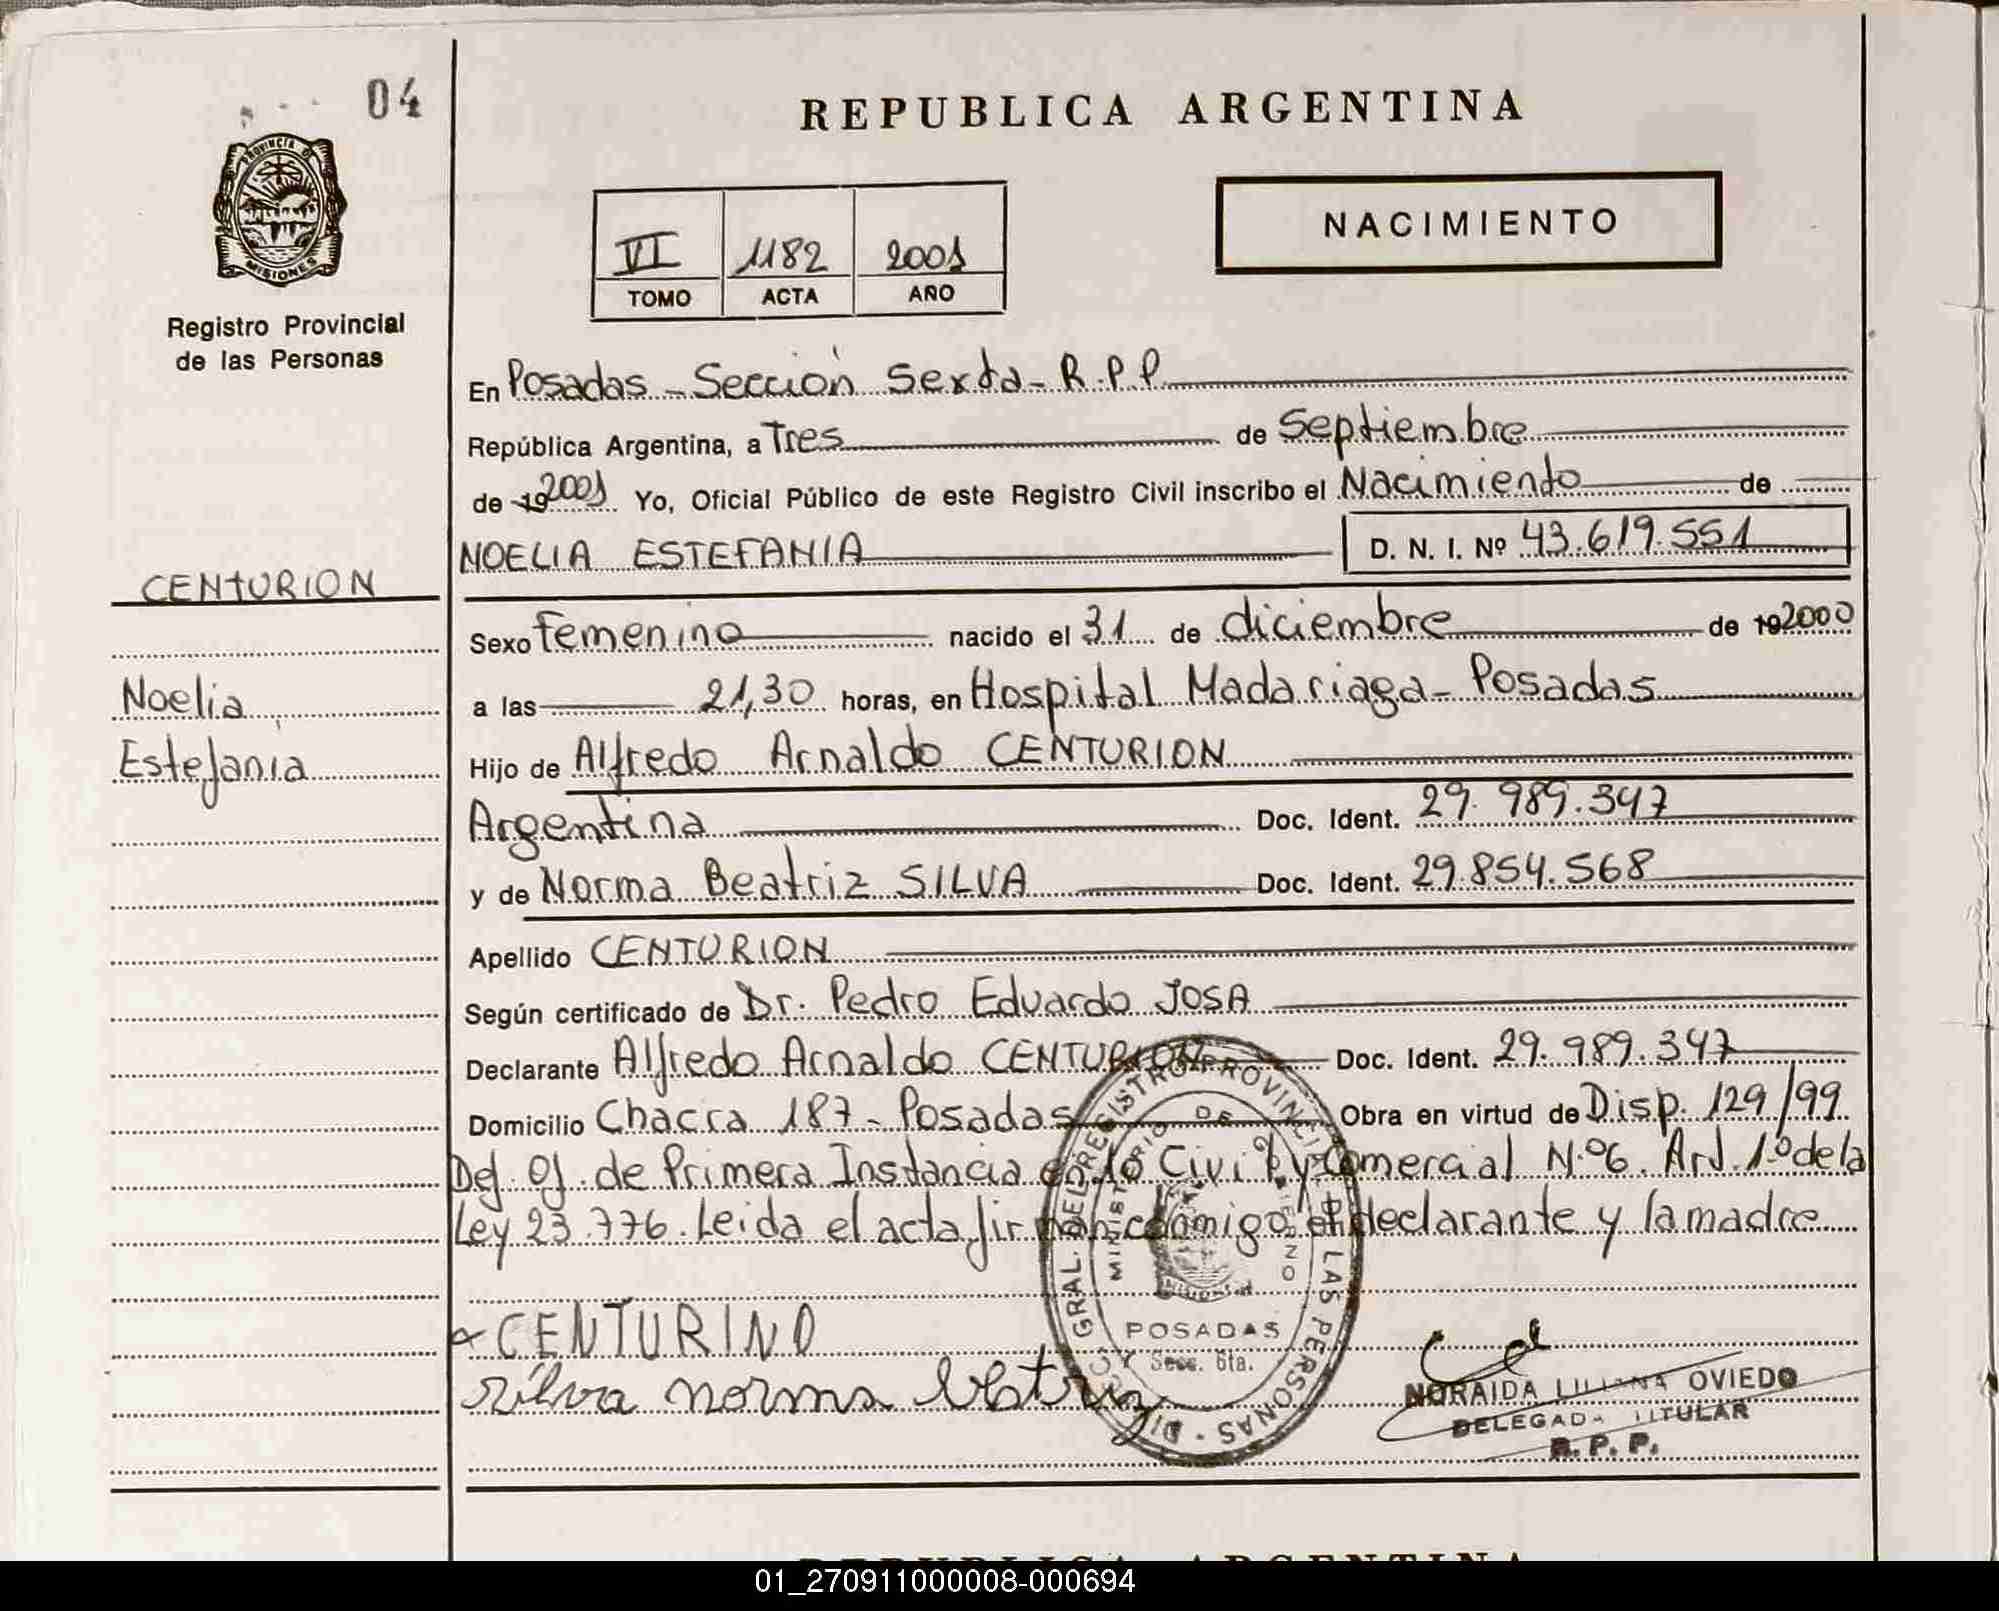 04
REPUBLICA ARGENTINA
PROVINCIA DE
MISIONES
Registro Provincial
de las Personas
NACIMIENTO
VI 1182 2001
TOMO ACTA AÑO
En Posadas - Sección Sexta - R.P.P.
República Argentina, a Tres de Septiembre
de 19 2001 Yo, Oficial Público de este Registro Civil inscribo el Nacimiento de
NOELIA ESTEFANIA D. N. I. Nº 43.619.551
CENTURION
Noelia
Estefania
Sexo Femenino nacido el 31 de diciembre de 19 2000
a las 21,30 horas, en Hospital Madariaga - Posadas
Hijo de Alfredo Arnaldo CENTURION
Argentina Doc. Ident. 29.989.347
y de Norma Beatriz SILVA Doc. Ident. 29.854.568
Apellido CENTURION
Según certificado de Dr. Pedro Eduardo JOSA
Declarante Alfredo Arnaldo CENTURION Doc. Ident. 29.989.347
Domicilio Chacra 187 - Posadas Obra en virtud de Disp. 129/99
Def. Of. de Primera Instancia en lo Civil y Comercial Nº 6. Art. 1º de la
Ley 23.776. Leida el acta firman conmigo el declarante y la madre
CENTURINO
silva norma
DIRECC. GRAL. DEL REGISTRO PROVINCIAL DE LAS PERSONAS
MINISTERIO DE GOBIERNO
POSADAS
Secc. 6ta.
NORAIDA LILIANA OVIEDO
DELEGADA TITULAR
R. P. P.
REPUBLICA ARGENTINA
01_270911000008-000694